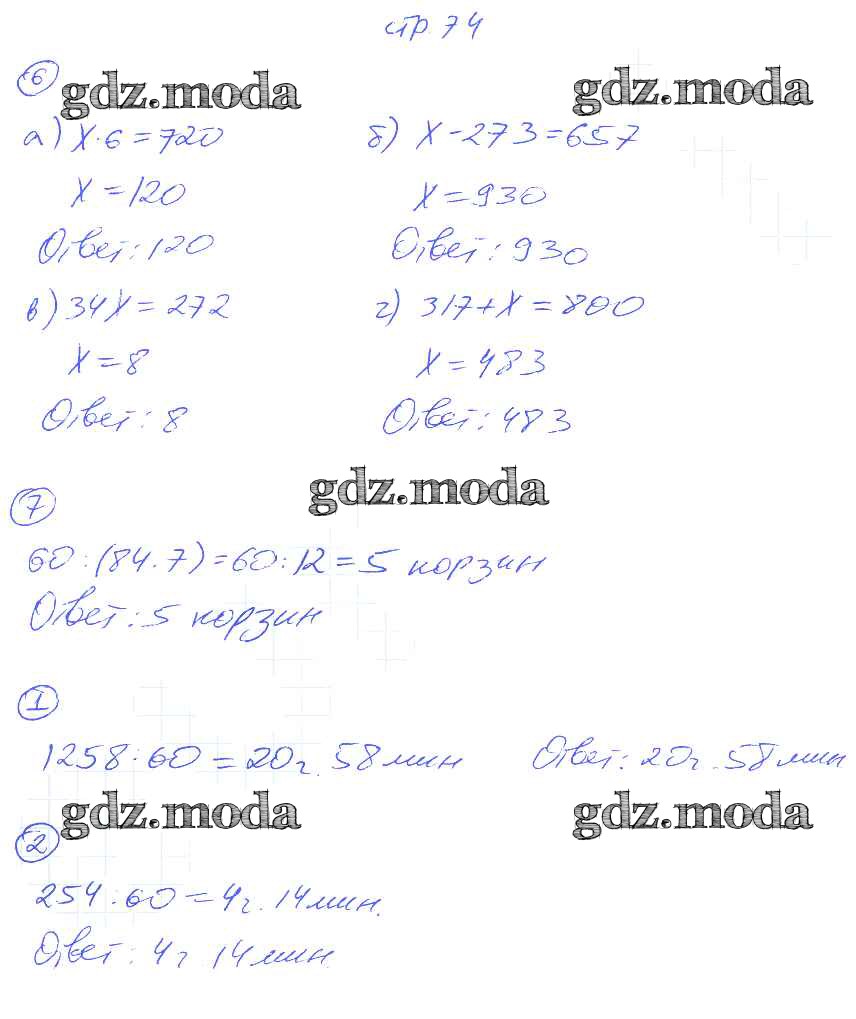 стр 74
6
gdz.moda gdz.moda
а) x·6=720 б) x-273=657
x=120 x=930
Ответ: 120 Ответ: 930
в) 34x=272 г) 317+x=800
x=8 x=483
Ответ: 8 Ответ: 483
gdz.moda
7
60:(84.7)=60:12=5 корзин
Ответ: 5 корзин
1
1258:60=20г. 58 мин Ответ: 20г. 58 мин
gdz.moda gdz.moda
2
254:60=4г. 14 мин.
Ответ: 4г 14 мин